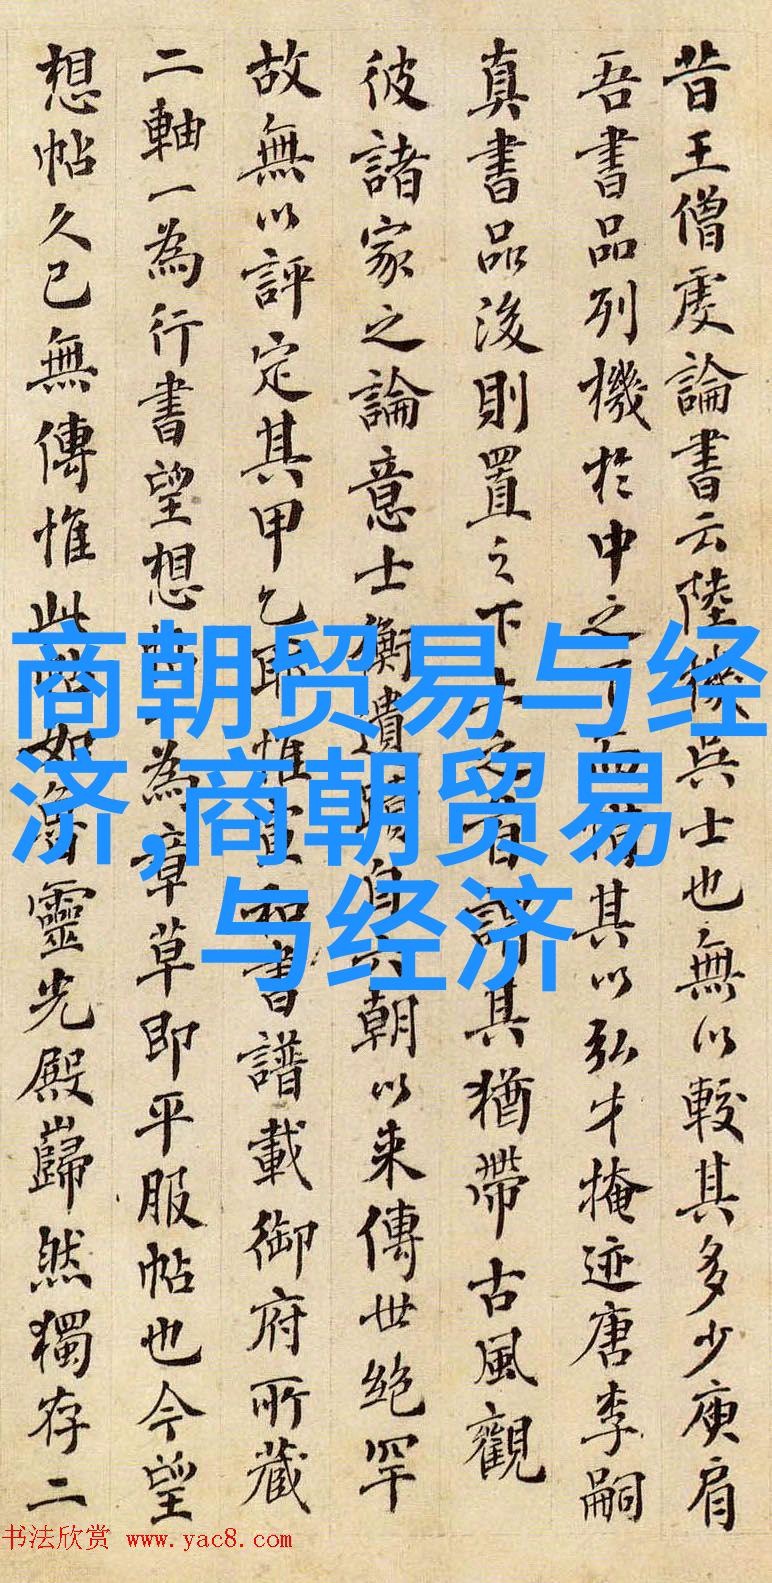 昔王僧虔論書云陸機吳士也無以較其多少庾肩
吾書品列機於中之下而惜其以弘才掩迹唐李嗣
真書品後則置之下上之首謂其猶帶古風觀
彼諸家之論意士衡遺蹟自六朝以来傳世絕罕
故無以評定其甲乙耶惟宣和書譜載御府所藏
二軸一為行書望想帖一為章草即平服帖也今望
想帖久已無傳惟此帖如魯靈光殿巋然獨存二
商朝贸易与经
济,商朝贸易
与经济
书法欣赏 www.yac8.com